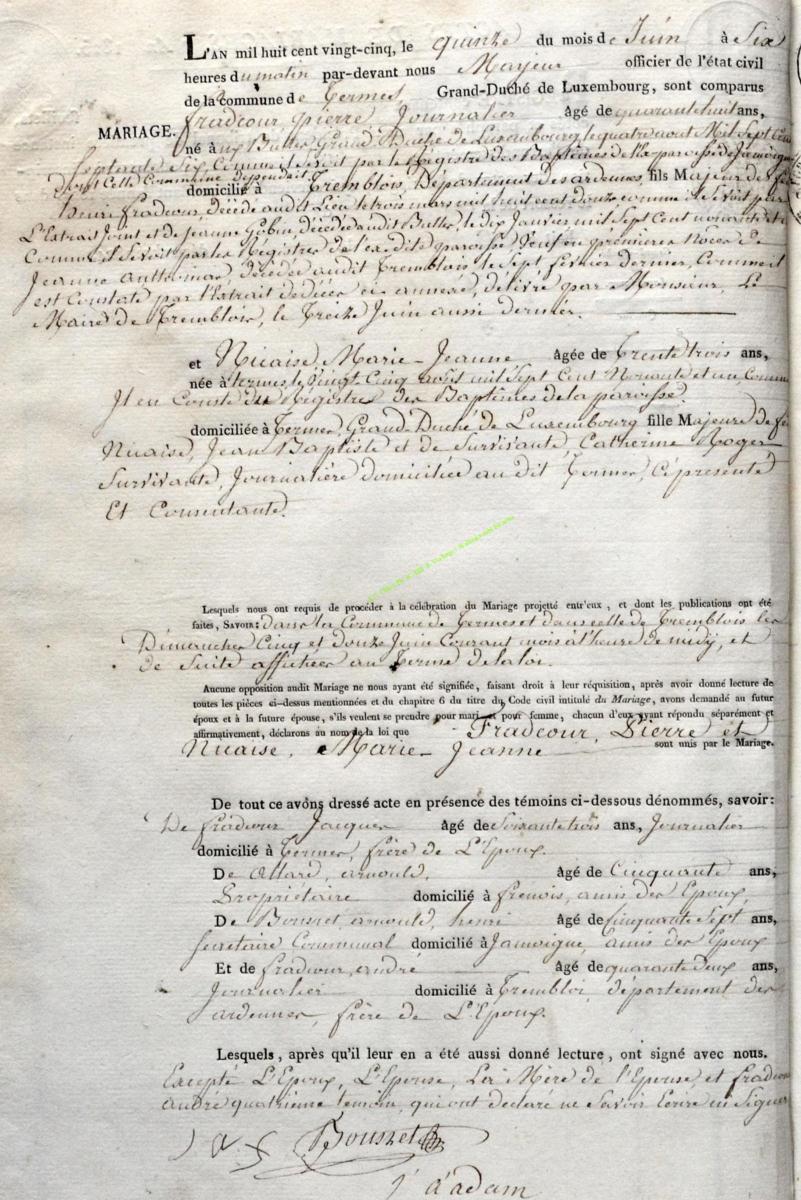 L'AN mil huit cent vingt-cinq, le quinze du mois de Juin à Six
heures du matin par-devant nous Mayeur officier de l'état civil
de la commune de Termes, Grand-Duché de Luxembourg, sont comparus
fradcour pierre Journalier âgé de quarante huit ans,
MARIAGE.
né à Bulles Grand Duché de Luxembourg, le quatre aout Mil Sept Cent
Septante Six Comme il se voit par le Registre des Baptêmes de la paroisse de Jamoigne
dont Cette Commune dependait
domicilié à Tremblois, Département des ardennes, fils Majeur de feu
henri fradcour, décédé audit Lieu le trois mars mil huit cent douze comme il se voit par
L'Extrait Joint et de Jeanne Gobin, décédée audit Bulles, le dix Janvier mil Sept Cent nonante
Comme il se voit par les Régistres de la dite paroisse Veuf en premieres Noces de
Jeanne décédée audit Tremblois le Sept fevrier dernier, Comme il
est Constaté par l'Extrait de décès ci annexé, délivré par Monsieur Le
Maire de Tremblois, le Treize Juin aussi dernier.
et Nicaise Marie-Jeanne âgée de Trente trois ans,
née à termes, le Vingt Cinq mil Sept Cent Nonante et un, Comme
Il en Conste du Régistre des Baptêmes de la paroisse.
domiciliée à Termes, Grand Duché de Luxembourg fille Majeure de feu
Nicaise, Jean Baptiste et de Survivante, Catherine Roger
Survivante, Journalière domiciliée au dit Termes, Ci présente
Et Consentante.
Lesquels nous ont requis de procéder à la célébration du Mariage projetté entr'eux, et dont les publications ont été
faites, SAVOIR: dans la Commune de Termes et dans celle de Tremblois les
Dimanches Cinq et douze Juin Courant mois à l'heure de midy, et
de Suite affichées au Terme de la loi.
Aucune opposition audit Mariage ne nous ayant été signifiée, faisant droit à leur réquisition, après avoir donné lecture de
toutes les pièces ci-dessus mentionnées et du chapitre 6 du titre du Code civil intitulé du Mariage, avons demandé au futur
époux et à la future épouse, s'ils veulent se prendre pour mari et pour femme, chacun d'eux ayant répondu séparément et
affirmativement, déclarons au nom de la loi que Fradcour, Pierre et
Nicaise, Marie-Jeanne sont unis par le Mariage.
De tout ce avons dressé acte en présence des témoins ci-dessous dénommés, savoir:
De fradcour Jacques âgé de Soixante trois ans, Journalier
domicilié à Termes, frère de L'Epoux.
De Allard, arnould, âgé de Cinquante ans,
Propriétaire domicilié à frenois, amis des Epoux,
De Bousret arnould, henri âgé de Cinquante Sept ans,
Secretaire Communal domicilié à Jamoigne, amis des Epoux
Et de fradcour, andré âgé de quarante deux ans,
Journalier domicilié à Tremblois, département des
ardennes, frère de L'Epoux.
Lesquels, après qu'il leur en a été aussi donné lecture, ont signé avec nous.
Excepté L'Epoux, L'Epouse, La Mère de l'Epouse, et fradcour
andré quatrieme temoin, qui ont declaré ne Savoir Ecrire ni Signer
Bousret
J a adam